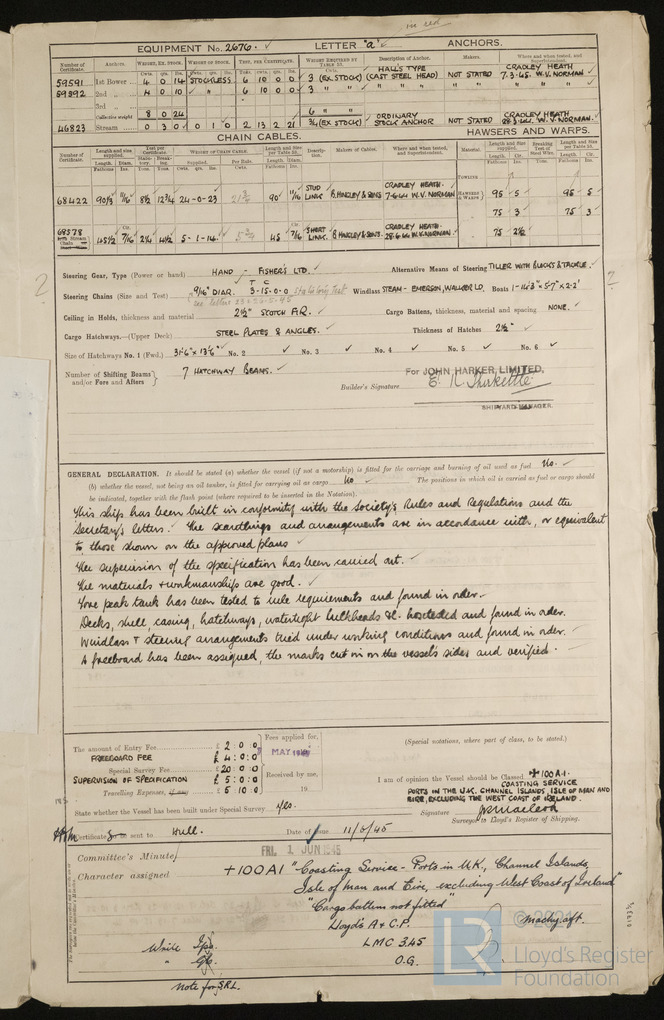 in red
EQUIPMENT No. 2676. ✓ LETTER "a" ✓ ANCHORS.
Number of Certificate. Anchors. WEIGHT, EX. STOCK. WEIGHT OF STOCK. TEST, PER CERTIFICATE. WEIGHT REQUIRED BY TABLE 53. Description of Anchor. Makers. Where and when tested, and Superintendent.
Cwts. qrs. lbs. Cwts. qrs. lbs. Tons. Cwts. qrs. lbs. Cwts.
59591 1st Bower 4 0 14 STOCKLESS 6 10 0 0 3 (EX STOCK) HALL'S TYPE (CAST STEEL HEAD) NOT STATED CRADLEY HEATH 7.3.45. W.V. NORMAN
59592 2nd " 4 0 10 " 6 10 0 0 3 " " " " " " "
3rd "
Collective weight 8 0 24 6 " "
46823 Stream 0 3 0 0 1 0 2 13 2 21 3/4 (EX STOCK) ORDINARY STOCK ANCHOR NOT STATED CRADLEY HEATH 28.3.44. W.V. NORMAN.
CHAIN CABLES. HAWSERS AND WARPS.
Number of Certificate. Length and size supplied. Test per Certificate. WEIGHT OF CHAIN CABLE. Length and Size per Table 53. Description. Makers of Cables. Where and when tested, and Superintendent. Material. Length and Size supplied. Breaking Test of Steel Wire. Length and Size per Table 53.
Length. Diam. Statutory. Breaking. Supplied. Per Rule. Length. Diam. Length. Cir. Length. Cir.
Fathoms Ins. Tons. Tons. Cwts. qrs. lbs. Cwts. Fathoms Ins. Fathoms Ins. Tons. Fathoms Ins.
TOWLINE
68422 90 1/3 11/16 8 1/2 12 3/4 24-0-23 21 3/4 90 11/16 STUD LINK B. HINGLEY & SONS CRADLEY HEATH. 7.6.44 W.V. NORMAN HAWSERS & WARPS 95 5 95 5
75 3 75 3
68578 Stream Chain 45 1/2 7/16 2 1/4 4 1/2 5-1-14 5 3/4 45 7/16 SHORT LINK. B HINGLEY & SONS. CRADLEY HEATH. 28.6.44 W.V. NORMAN 75 2 1/2
Steering Gear, Type (Power or hand) HAND - FISHER'S LTD. ✓ Alternative Means of Steering TILLER WITH BLOCKS & TACKLE. ✓
Steering Chains (Size and Test) 9/16" DIAR. T C 3-15-0-0 Windlass STEAM - EMERSON, WALKER LD. Boats 1-14'3" x 5'7" x 2'2"
Ceiling in Holds, thickness and material 2 1/2" SCOTCH FIR. ✓ Cargo Battens, thickness, material and spacing NONE. ✓
Cargo Hatchways.—(Upper Deck) STEEL PLATES & ANGLES. ✓ Thickness of Hatches 2 1/2" ✓
Size of Hatchways No. 1 (Fwd.) 31'-6" x 13'-6" No. 2 ✓ No. 3 ✓ No. 4 ✓ No. 5 ✓ No. 6 ✓
Number of Shifting Beams and/or Fore and Afters 7 HATCHWAY BEAMS. ✓
For JOHN HARKER, LIMITED.
Builder's Signature
SHIPYARD MANAGER.
GENERAL DECLARATION. It should be stated (a) whether the vessel (if not a motorship) is fitted for the carriage and burning of oil used as fuel No. ✓
(b) whether the vessel, not being an oil tanker, is fitted for carrying oil as cargo No ✓ The positions in which oil is carried as fuel or cargo should
be indicated, together with the flash point (where required to be inserted in the Notation).
This ship has been built in conformity with the Society's Rules and Regulations and the
Secretary's letters. The scantlings and arrangements are in accordance with, or equivalent
to, those shown on the approved plans ✓
The supervision of the specification has been carried out. ✓
The materials & workmanship are good. ✓
Fore peak tank has been tested to rule requirements and found in order.
Decks, shell, casing, hatchways, watertight bulkheads &c. hosetested and found in order.
Windlass & steering arrangements tried under working conditions and found in order. ✓
A freeboard has been assigned, the marks cut in on the vessel's sides and verified. ✓
The amount of Entry Fee £ 2:0:0 Fees applied for,
FREEBOARD FEE £ 4:0:0 MAY 1945
Special Survey Fee £ 20:0:0
SUPERVISION OF SPECIFICATION £ 5:0:0 Received by me,
Travelling Expenses, if any £ 5 10 0 19
(Special notations, where part of class, to be stated.)
I am of opinion the Vessel should be Classed ✠100A1.
COASTING SERVICE
PORTS IN THE U.K. CHANNEL ISLANDS, ISLE OF MAN AND
EIRE, EXCLUDING THE WEST COAST OF IRELAND.
State whether the Vessel has been built under Special Survey Yes.
Signature
Surveyor to Lloyd's Register of Shipping.
Certificate to be sent to Hull. Date of issue 11/6/45
Committee's Minute FRI. 1 JUN 1945
Character assigned +100A1 "Coasting Service - Ports in U.K., Channel Islands,
Isle of Man and Eire, excluding West Coast of Ireland"
"Cargo battens not fitted"
Lloyd's A & C.P. Machy aft.
Write LMC 3.45
" O.G.
Note for S.R.L.
© 2021
LR
Lloyd's Register
Foundation